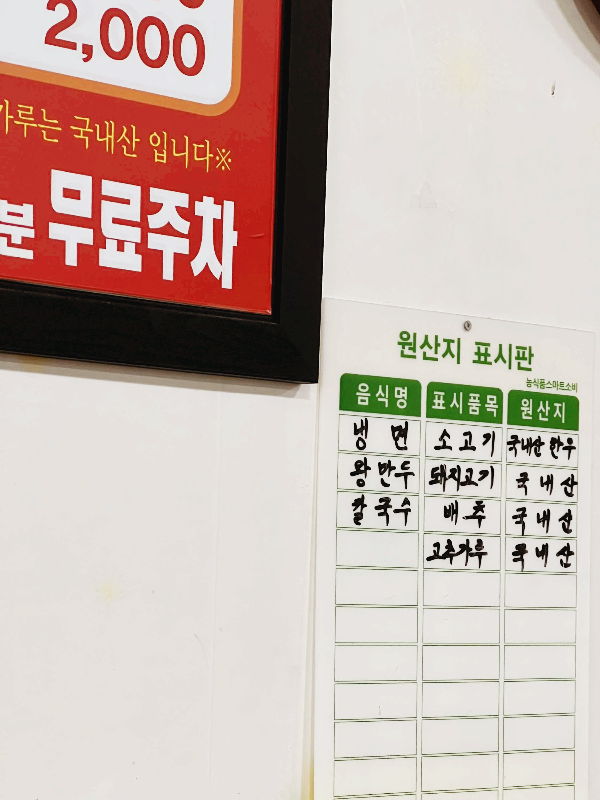 2,000
가루는 국내산 입니다※
분 무료주차
원산지 표시판
농식품스마트소비
음식명 표시품목 원산지
냉면 소고기 국내산 한우
왕만두 돼지고기 국내산
칼국수 배추 국내산
고추가루 국내산